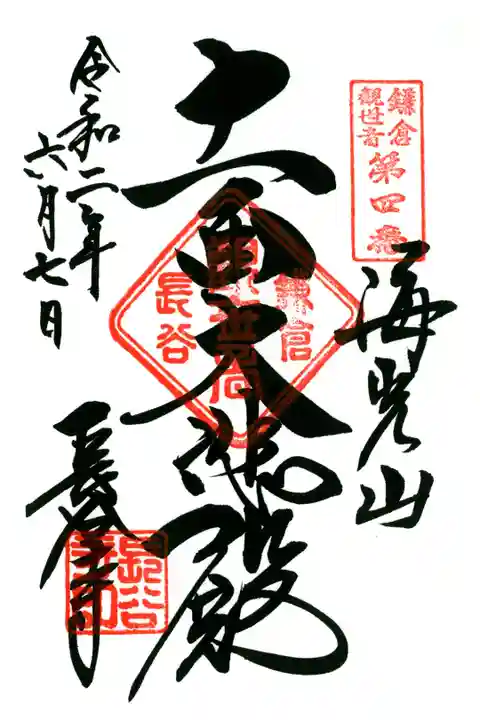 鎌倉
観世音
第四番
海光山
十一面大悲殿
鎌倉
長谷
令和二年
六月七日
長谷寺
長谷
寺印